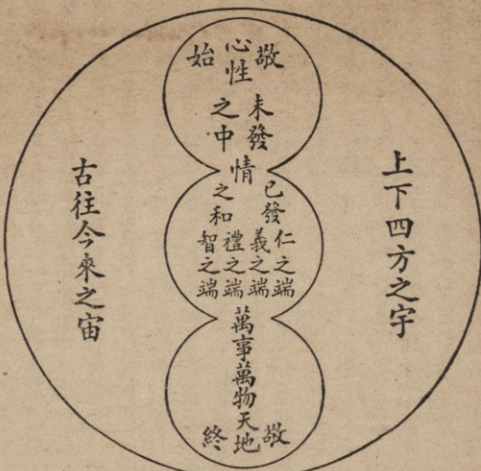 上下四方之宇
敬
心性
始
未發
之中
情
已發
之和
仁之端
義之端
禮之端
智之端
萬事萬物天地
敬
終
古往今來之宙